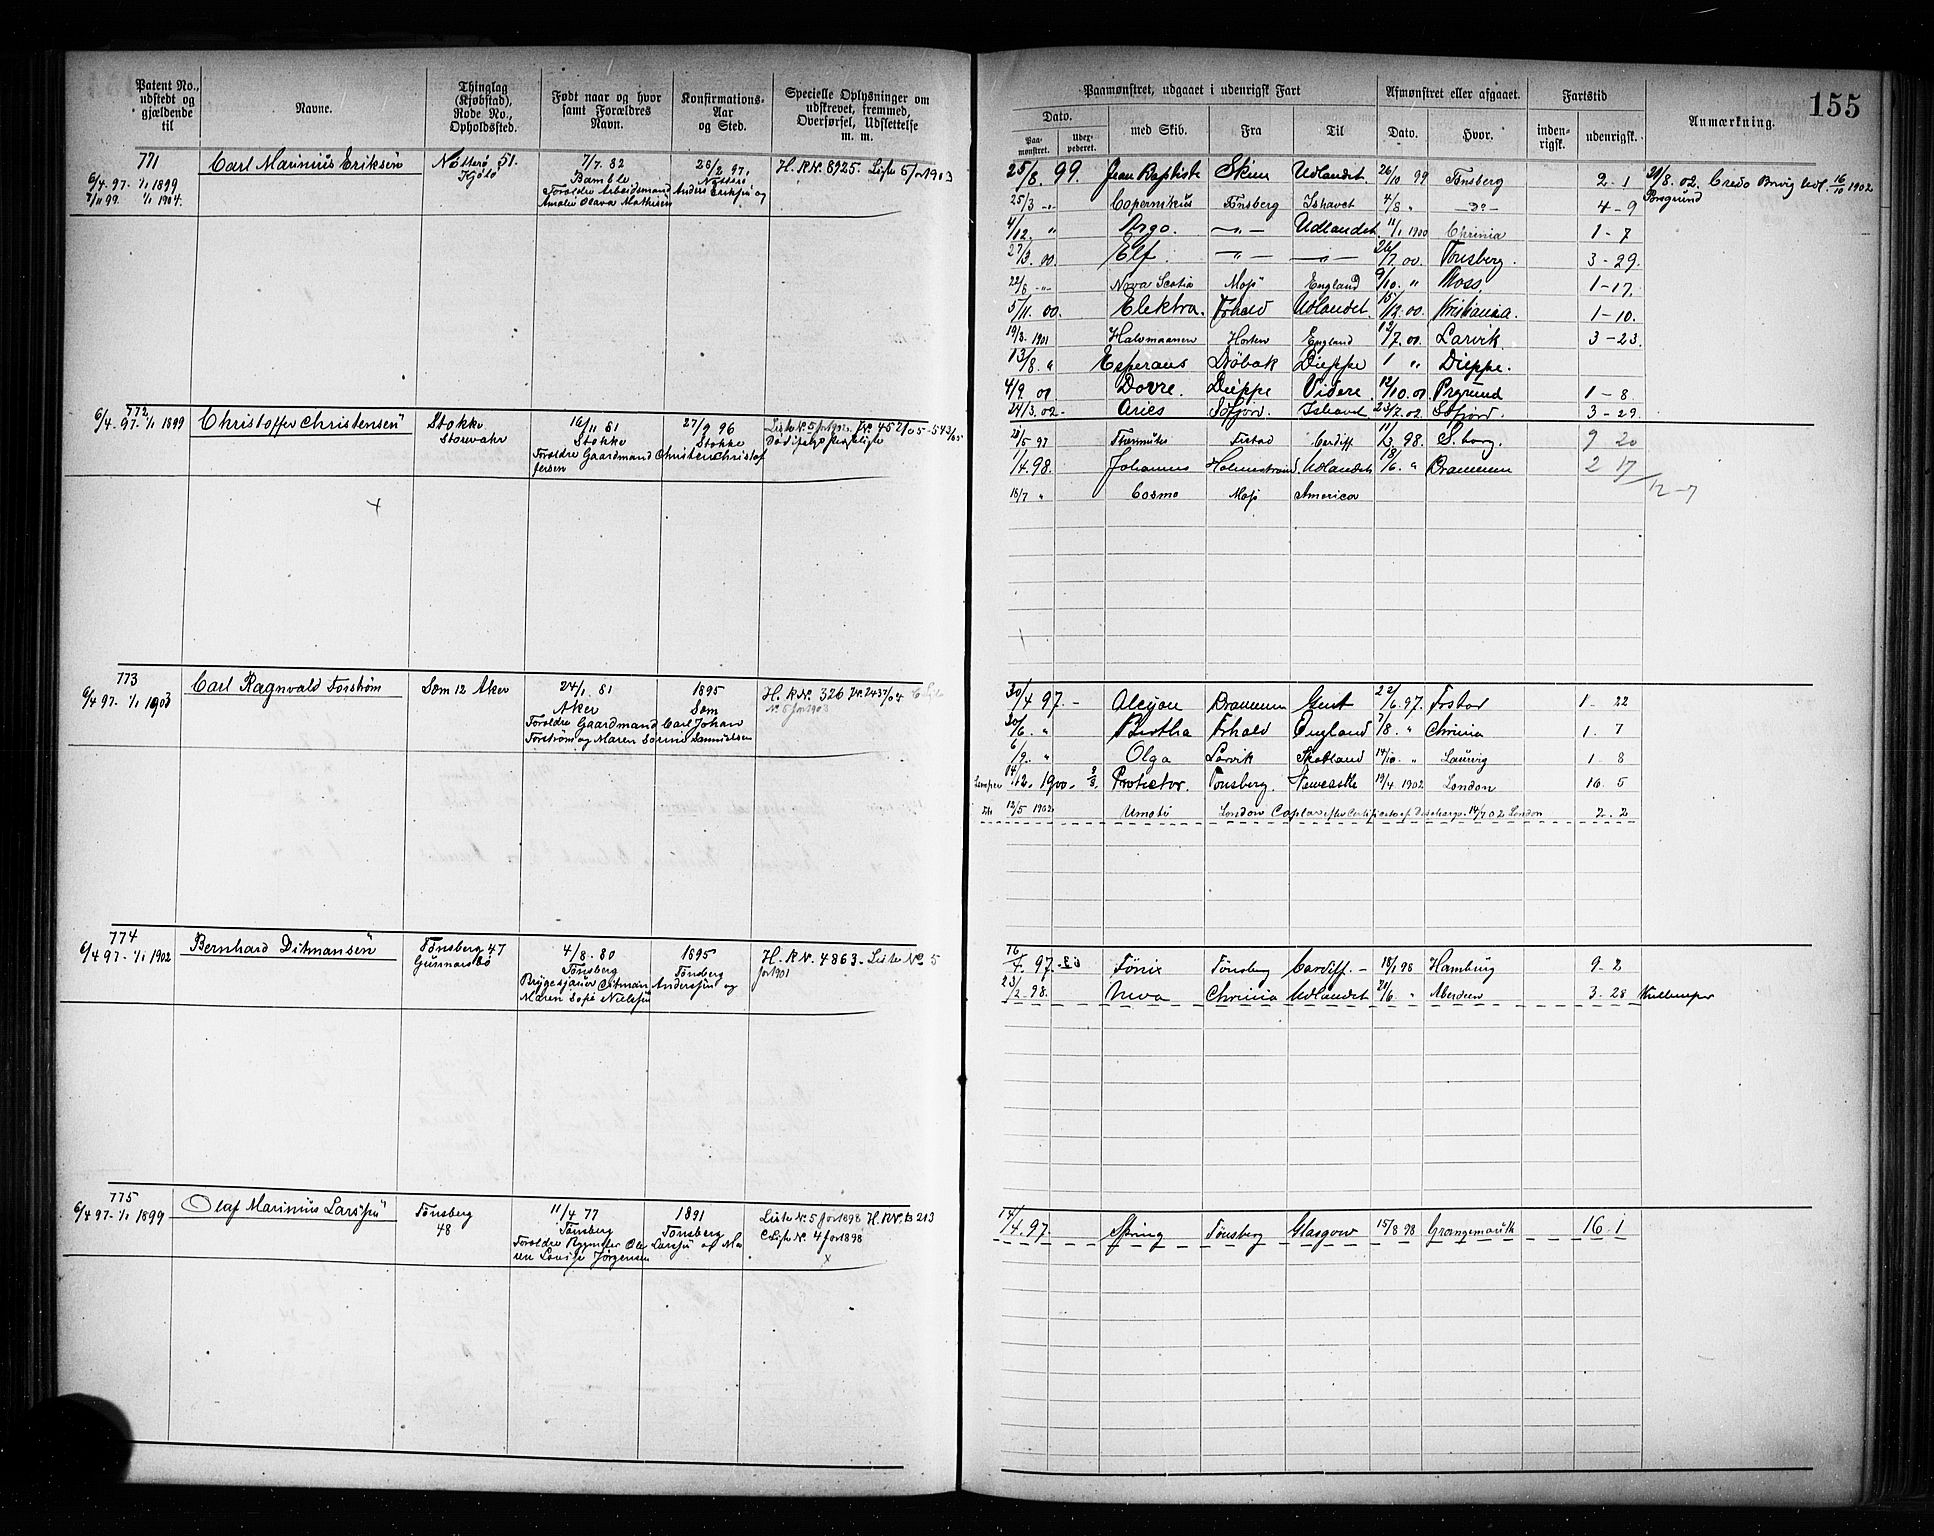 155
Patent No., udstedt og gjældende til
Navne.
Thinglag (Kjøbstad), Rode No., Opholdssted.
Født naar og hvor samt Forældres Navn.
Konfirmations-Aar og Sted.
Specielle Oplysninger om udskrevet, fremmed, Overførsel, Udslettelse m. m.
Paamønstret, udgaaet i udenrigsk Fart
Dato.
Paa-mønstret.
med Skib.
Fra
Til
Afmønstret eller afgaaet.
Dato.
Hvor.
Fartstid
inden-rigsk.
udenrigsk.
Anmærkning.
771
6/4. 97. 1/1 1899
7/11 99. 1/1 1904.
Carl Marinius Eriksen
Nøtterø 51.
7/7. 82
Bamble
Forældre Arbeidsmand Anders Eriksen og
Amalie Olava Mathisen
26/9 97.
Nøtterø
H. R. Nr. 8925. Liste 5 for 1903
25/8. 99. Jean Baptiste Skien Udlandet. 26/10 99 Tønsberg 2. 1
Credo Brvig Udl. 16/10 1902
Porsgrund
25/3 Copernikus Tønsberg Ishavet 4/8 " 4 - 9
4/12. " Argo. — " — Udlandet. 11/1 1900 Chrinia 1 - 7
27/3. 00. Elf. — " — — " — 26/7. 00. Tønsberg. 3 - 29.
22/8 - " - Nova Scotia Moss England 9/10. " Moss. 1 - 17.
5/11. 00. Elektra. Frhald Udlandet. 15/12. 00. Kristiania. 1 - 10.
19/3. 1901 Halvmaanen Horten England 12/7. 01. Larvik. 3 - 23.
13/8. " Esperans Drøbak Dieppe 1 " Dieppe.
4/9. 01 Dovre. Dieppe Videre 12/10. 01 Prgrund 1 - 8
24/3. 02. - Aries Sdfjord. Ishavet 23/7. 02. Sdfjord. 3 - 29.
772
6/4. 97. 1/1 1899
Christoffer Christensen
Stokke
16/11 81
Stokke
Forældre Gaardmand Christen Christof
fersen
27/9 96
Stokke
Liste N. 5 for
28/5 97 Frstad Cardiff 11/3. 98. S.borg. 9 20
1/4. 98. Johannes Holmestrand. Udlandet 18/6. " Drammen 2 17
12 - 7
18/7 " Cosmo Moss America
773
6/4 97. 1/1 1903
Carl Ragnvald Forstrøm
Sem 12 Aker
24/1. 81
Aker
Forældre Gaardmand Carl Johan
Forstrøm og Maren Sørine Samuelsen
1895
Sem
H. R. Nr. 326 Jr. 2437/04
N. 5 for 1903
30/4 97. - Alcyon Drammen Gent 22/6. 97. Frstad 1 - 22
30/6. " Bertha Frhald England 7/8. " Chrinia 1. 7
6/9. " Olga Larvik Skotland 14/10. " Laurvig 1 8
1900. Protector. Tønsberg. Newcastle 19/4 1902 London 16. 5
12/5 1902 Umoti London Certificate of Discharge. 14/7 02 London 2. 2
774
6/4 97 - 1/1 1902
Bernhard Ditmansen
Tønsberg 47
Gunnarsbø
4/8. 80
Tønsberg
Bryggesjauer Ditman Anderssen og
Maren Sofie Nielssen
1895
Tønsberg
H. R. Nr. 4863. Liste No. 5
for 1901
16/4. 97. Fønix Tønsberg Cardiff. - 18/1 98 Hamburg 9. 2
23/2. 98. Neva Chrinia Udlandet 21/6. " Aberdeen 3. 28
775
6/4 97 - 1/1 1899
Olaf Marinius Larssen
Tønsberg
48
11/4 77
Tønsberg
Forældre Ole Larssen og Ma
ren Lovise Jørgensen
1891
Tønsberg
Liste N. 5 for 1898 H. R. Nr. B 213
C. Liste N. 4 for 1898
14/4. 97 Spring Tønsberg Glasgow 15/8 98 Grangemouth 16. 1